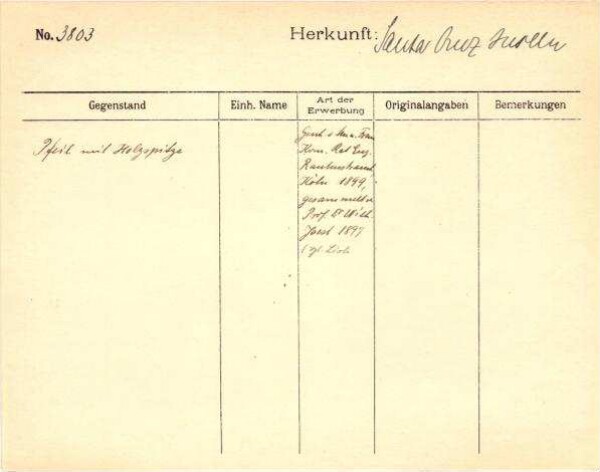 No. 3803
Herkunft: Santa Cruz Inseln
Gegenstand
Einh. Name
Art der Erwerbung
Originalangaben
Bemerkungen
Pfeil mit Holzspitze
Frau
Kom. Rat Eug.
Rautenstrauch
Köln 1899,
gesammelt v.
Prof. Dr Wilh.
Joest 1897